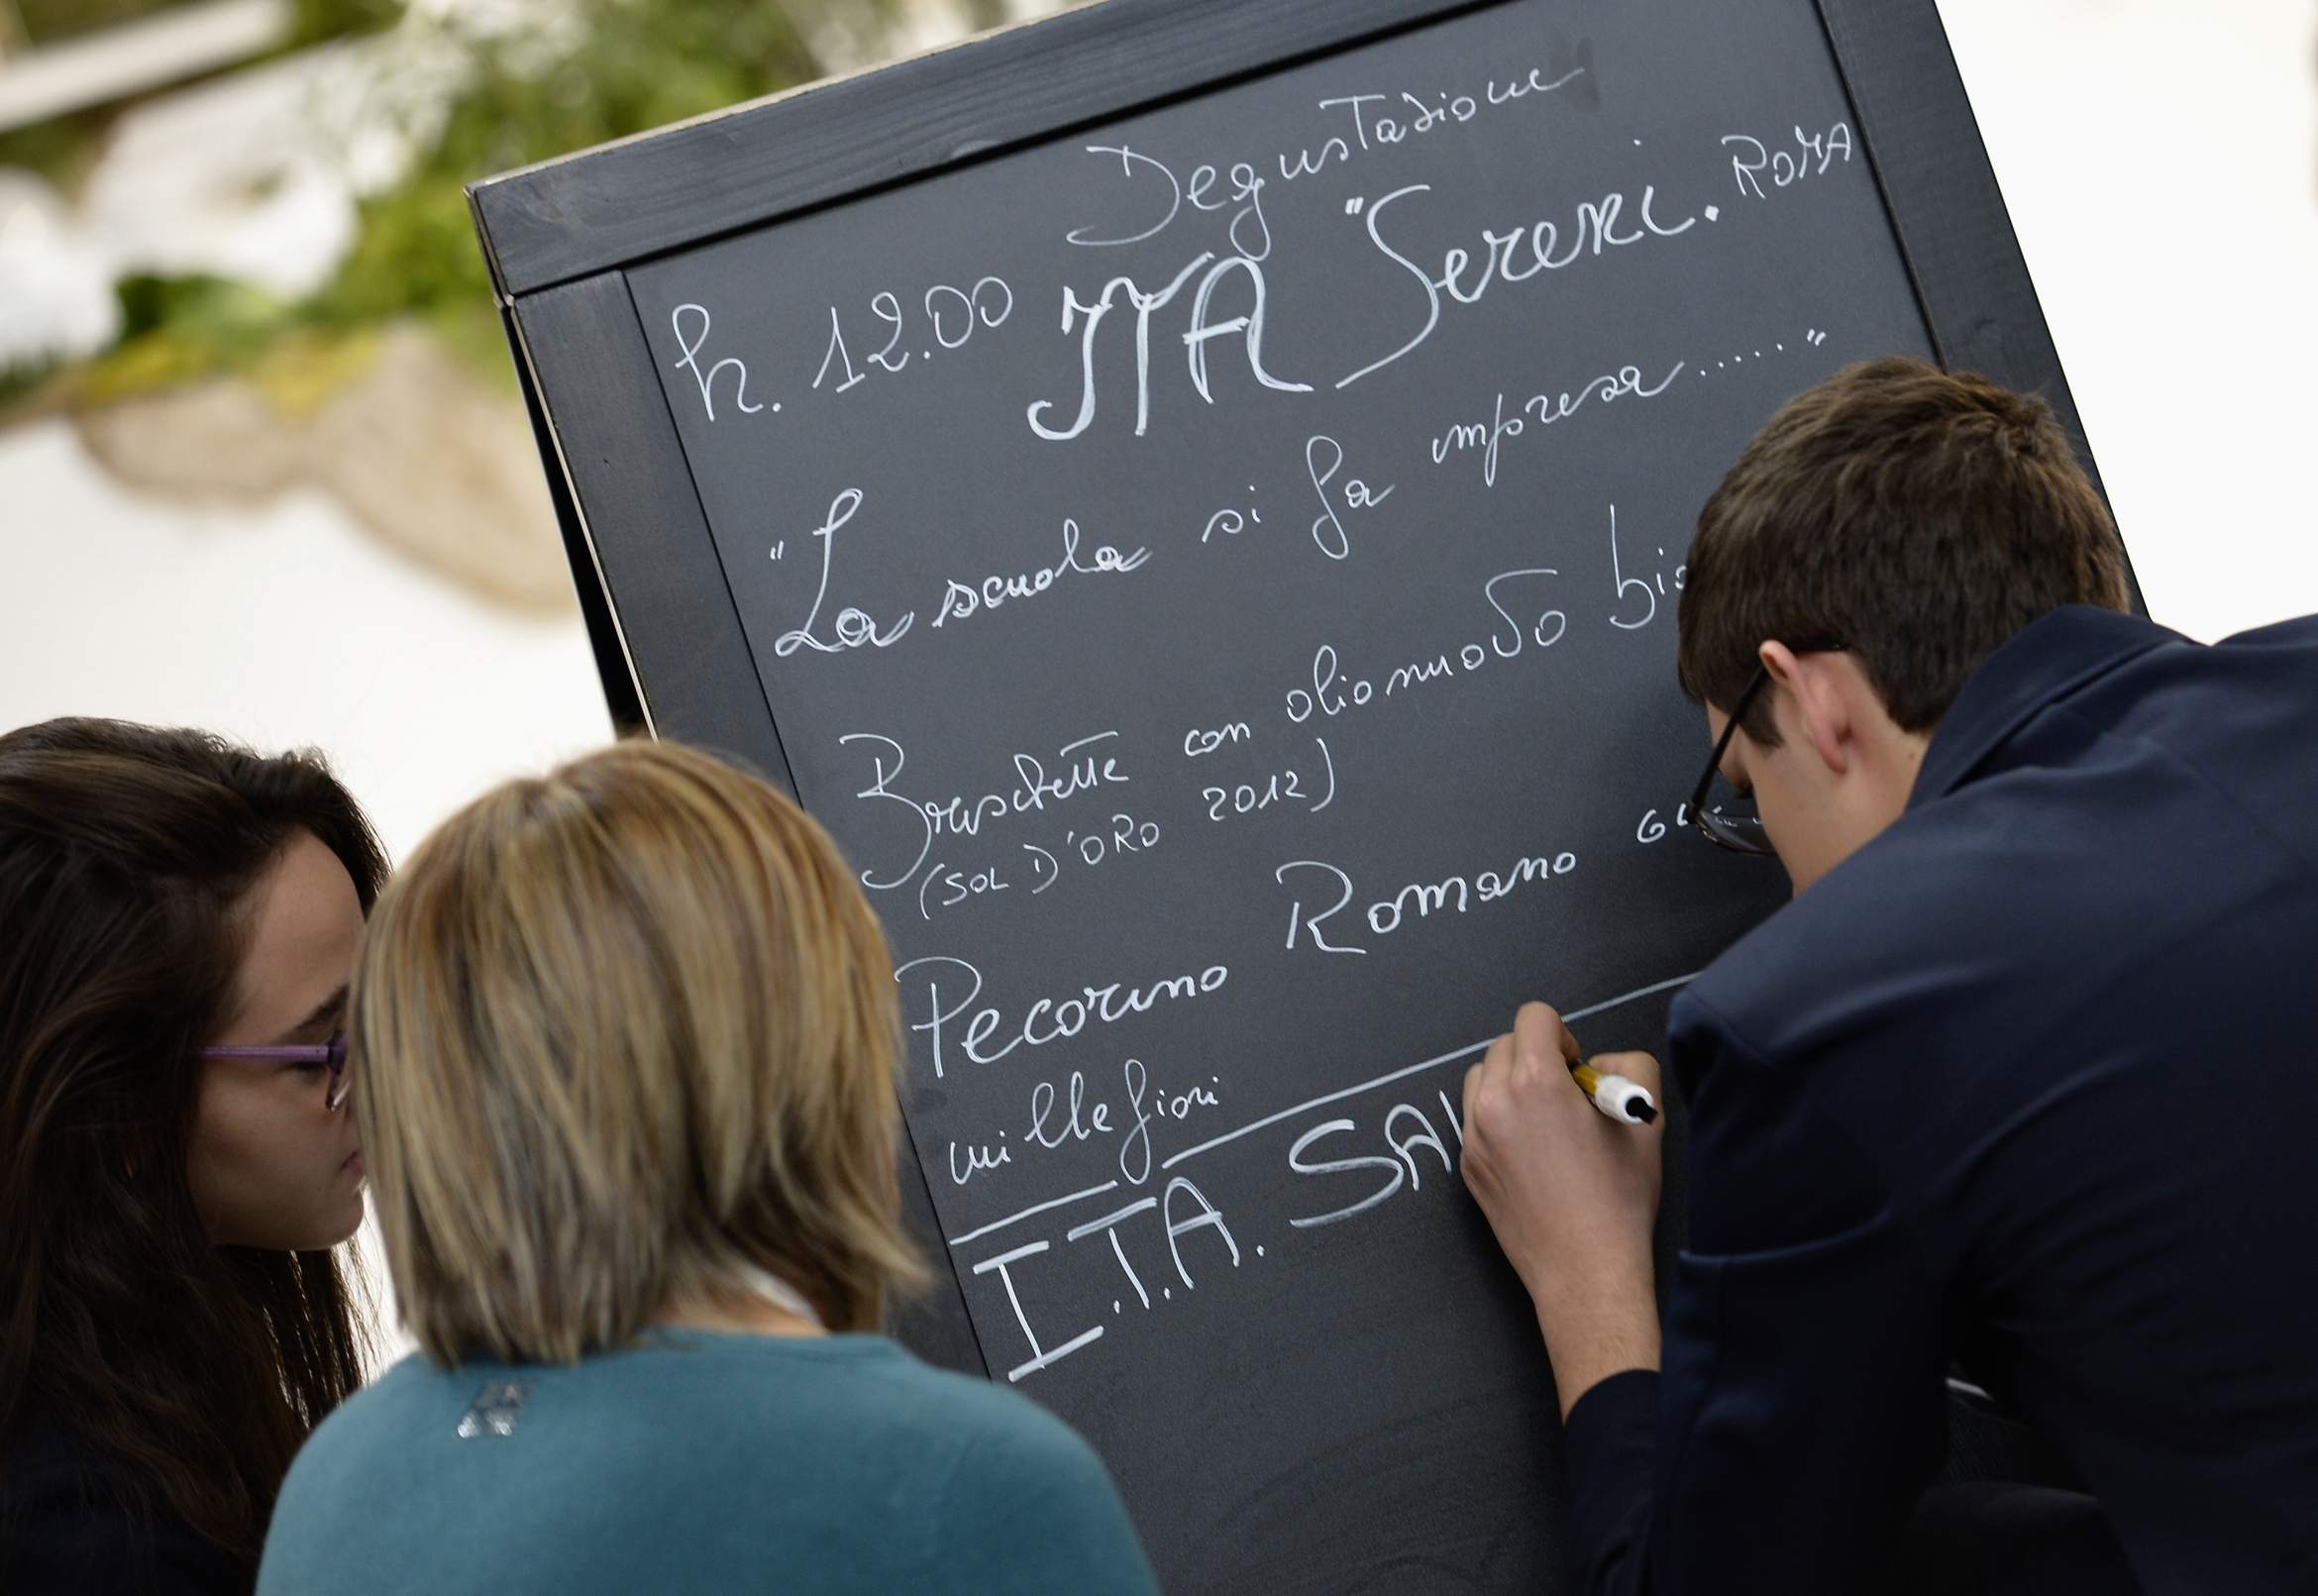 Degustazione
h. 12.00 ITA "Sereni. ROMA
"La scuola si fa impresa ....."
Bruschette con olio nuovo
(SOL D'ORO 2012)
Pecorino Romano
millefiori
I.T.A. SA